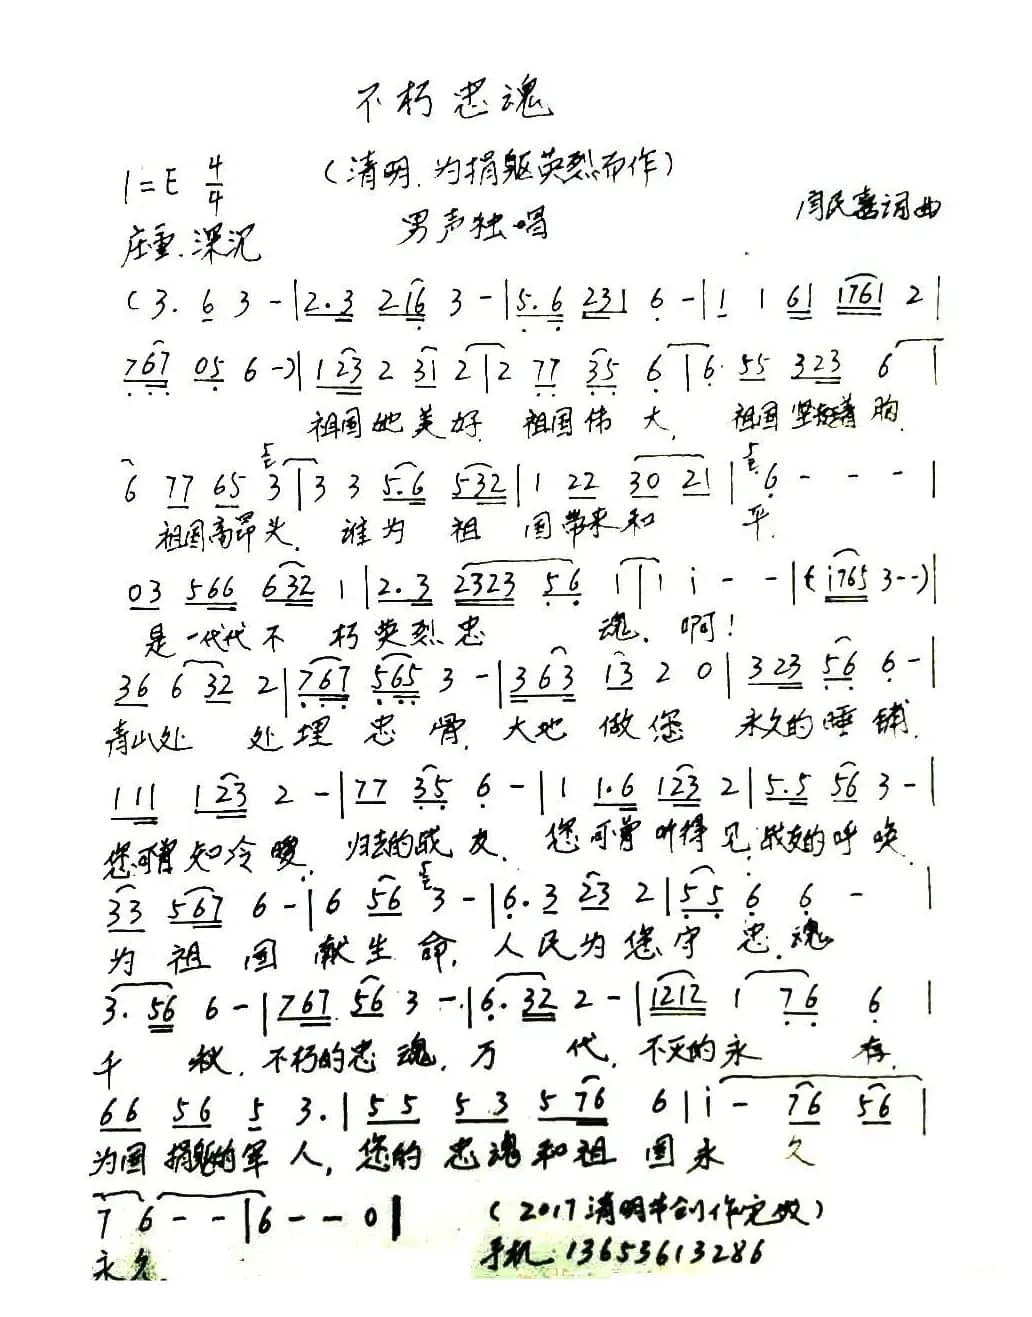 不朽忠魂
(清明.为捐躯英烈而作)
1=E 4/4
闫民喜词曲
男声独唱
庄重.深沉
(3. 6 3 -|2.3 216 3 -|5.6 231 6 -|1 1 61 1761 2|
767 05 6 -)|123 2 31 2|2 77 35 6|6. 55 323 6|
祖国她美好. 祖国伟大, 祖国坚挺着胸.
6 77 65 3|3 3 5.6 532|1 22 30 21|6 - - -|
祖国高昂头. 谁为祖国带来和平.
03 566 632 1|2.3 2323 56 1|1 i - -|(i765 3--)|
是一代代不朽英烈忠魂. 啊!
36 6 32 2|767 565 3 -|363 13 2 0|323 56 6 -|
青山处处埋忠骨. 大地做您永久的睡铺.
111 123 2 -|77 35 6 -|1 1.6 123 2|5.5 56 3 -|
您可曾知冷暖, 归去的战友. 您可曾听得见,战友的呼唤.
33 567 6 -|6 56 3 -|6.3 23 2|55 6 6 -|
为祖国献生命, 人民为您守忠魂
3. 56 6 -|767 56 3 -|6. 32 2 -|1212 1 76 6|
千秋, 不朽的忠魂, 万代, 不灭的永存.
66 56 5 3.|55 53 576 6|i - 76 56|
为国捐躯的军人, 您的忠魂和祖国永久
7 6 - -|6 - - 0|
永久.
(2017清明节创作完毕)
手机 13653613286